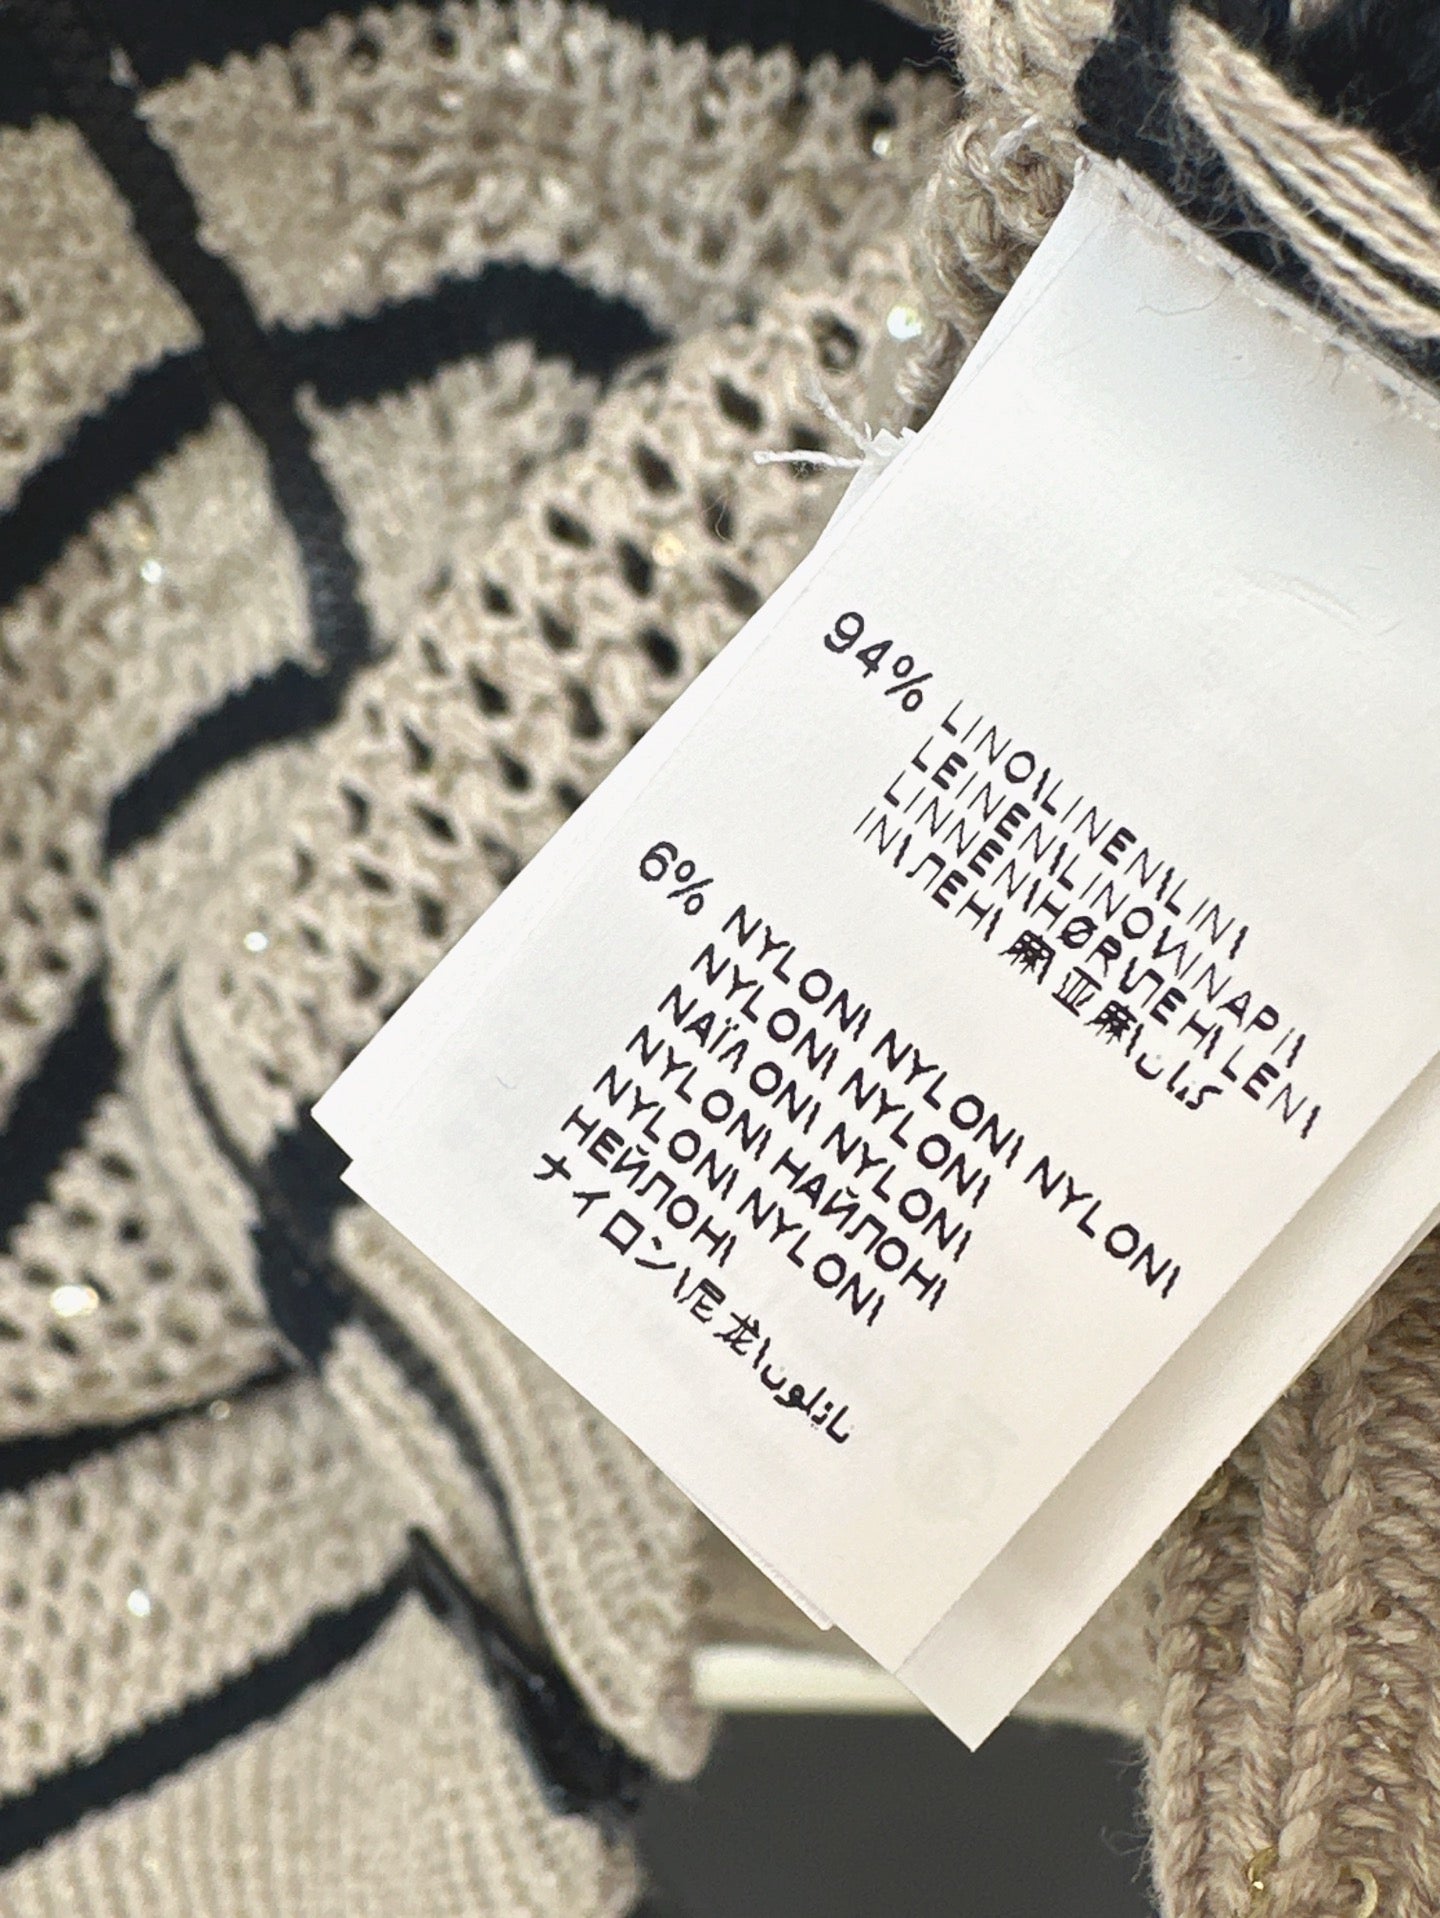 94% LINO\LINEN\LIN\
LEINEN\LINOWNAPI\
LINNEN\HØR\ЛЕН\LEN\
IN\ЛЕН\麻\亚麻\كتان
6% NYLON\NYLON\NYLON\
NYLON\NYLON\
ΝΑΪΛΟΝ\NYLON\
NYLON\НАЙЛОН\
NYLON\NYLON\
НЕЙЛОН\
ナイロン\尼龙\نايلون